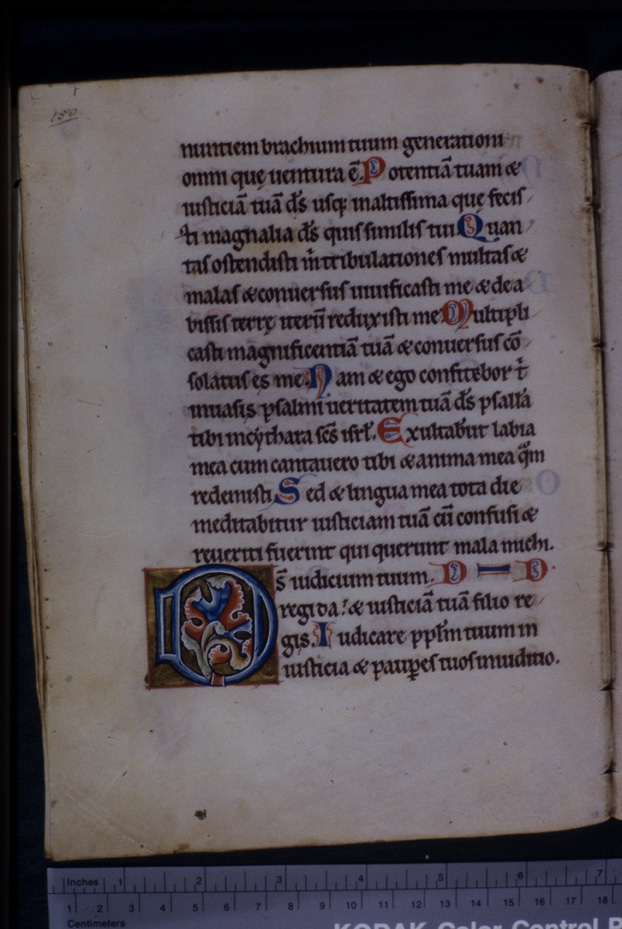 150
nuntiem brachium tuum generationi
omni quę uentura ē. Potentiā tuam &
iusticiā tuā ds̄ usq; inaltissima quę fecis
ti magnalia ds̄ quis similis tui Quan
tas ostendisti m̄ tribulationes multas &
malas & conuersus uiuificasti me & dea
bissis terrę iterū reduxisti me Multipli
casti magnificentiā tuā & conuersus cō
solatus es me. Nam & ego confitebor t̄
inuasis psalmi ueritatem tuā ds̄ psallā
tibi incythara scs̄ isrl̄. Exultabunt labia
mea cum cantauero tibi & anima mea qm̄
redemisti Sed & lingua mea tota die
meditabitur iusticiam tuā cū confusi &
reueriti fuerint qui querunt mala michi.
Ds̄ iudicium tuum.
regi da: & iusticiā tuā filio re
gis. Iudicare pplm̄ tuum in
iusticia & paup̄es tuos iniuditio.
Inches 1 2 3 4 5 6 7
1 2 3 4 5 6 7 8 9 10 11 12 13 14 15 16 17 18
Centimeters
KODAK Color Control P